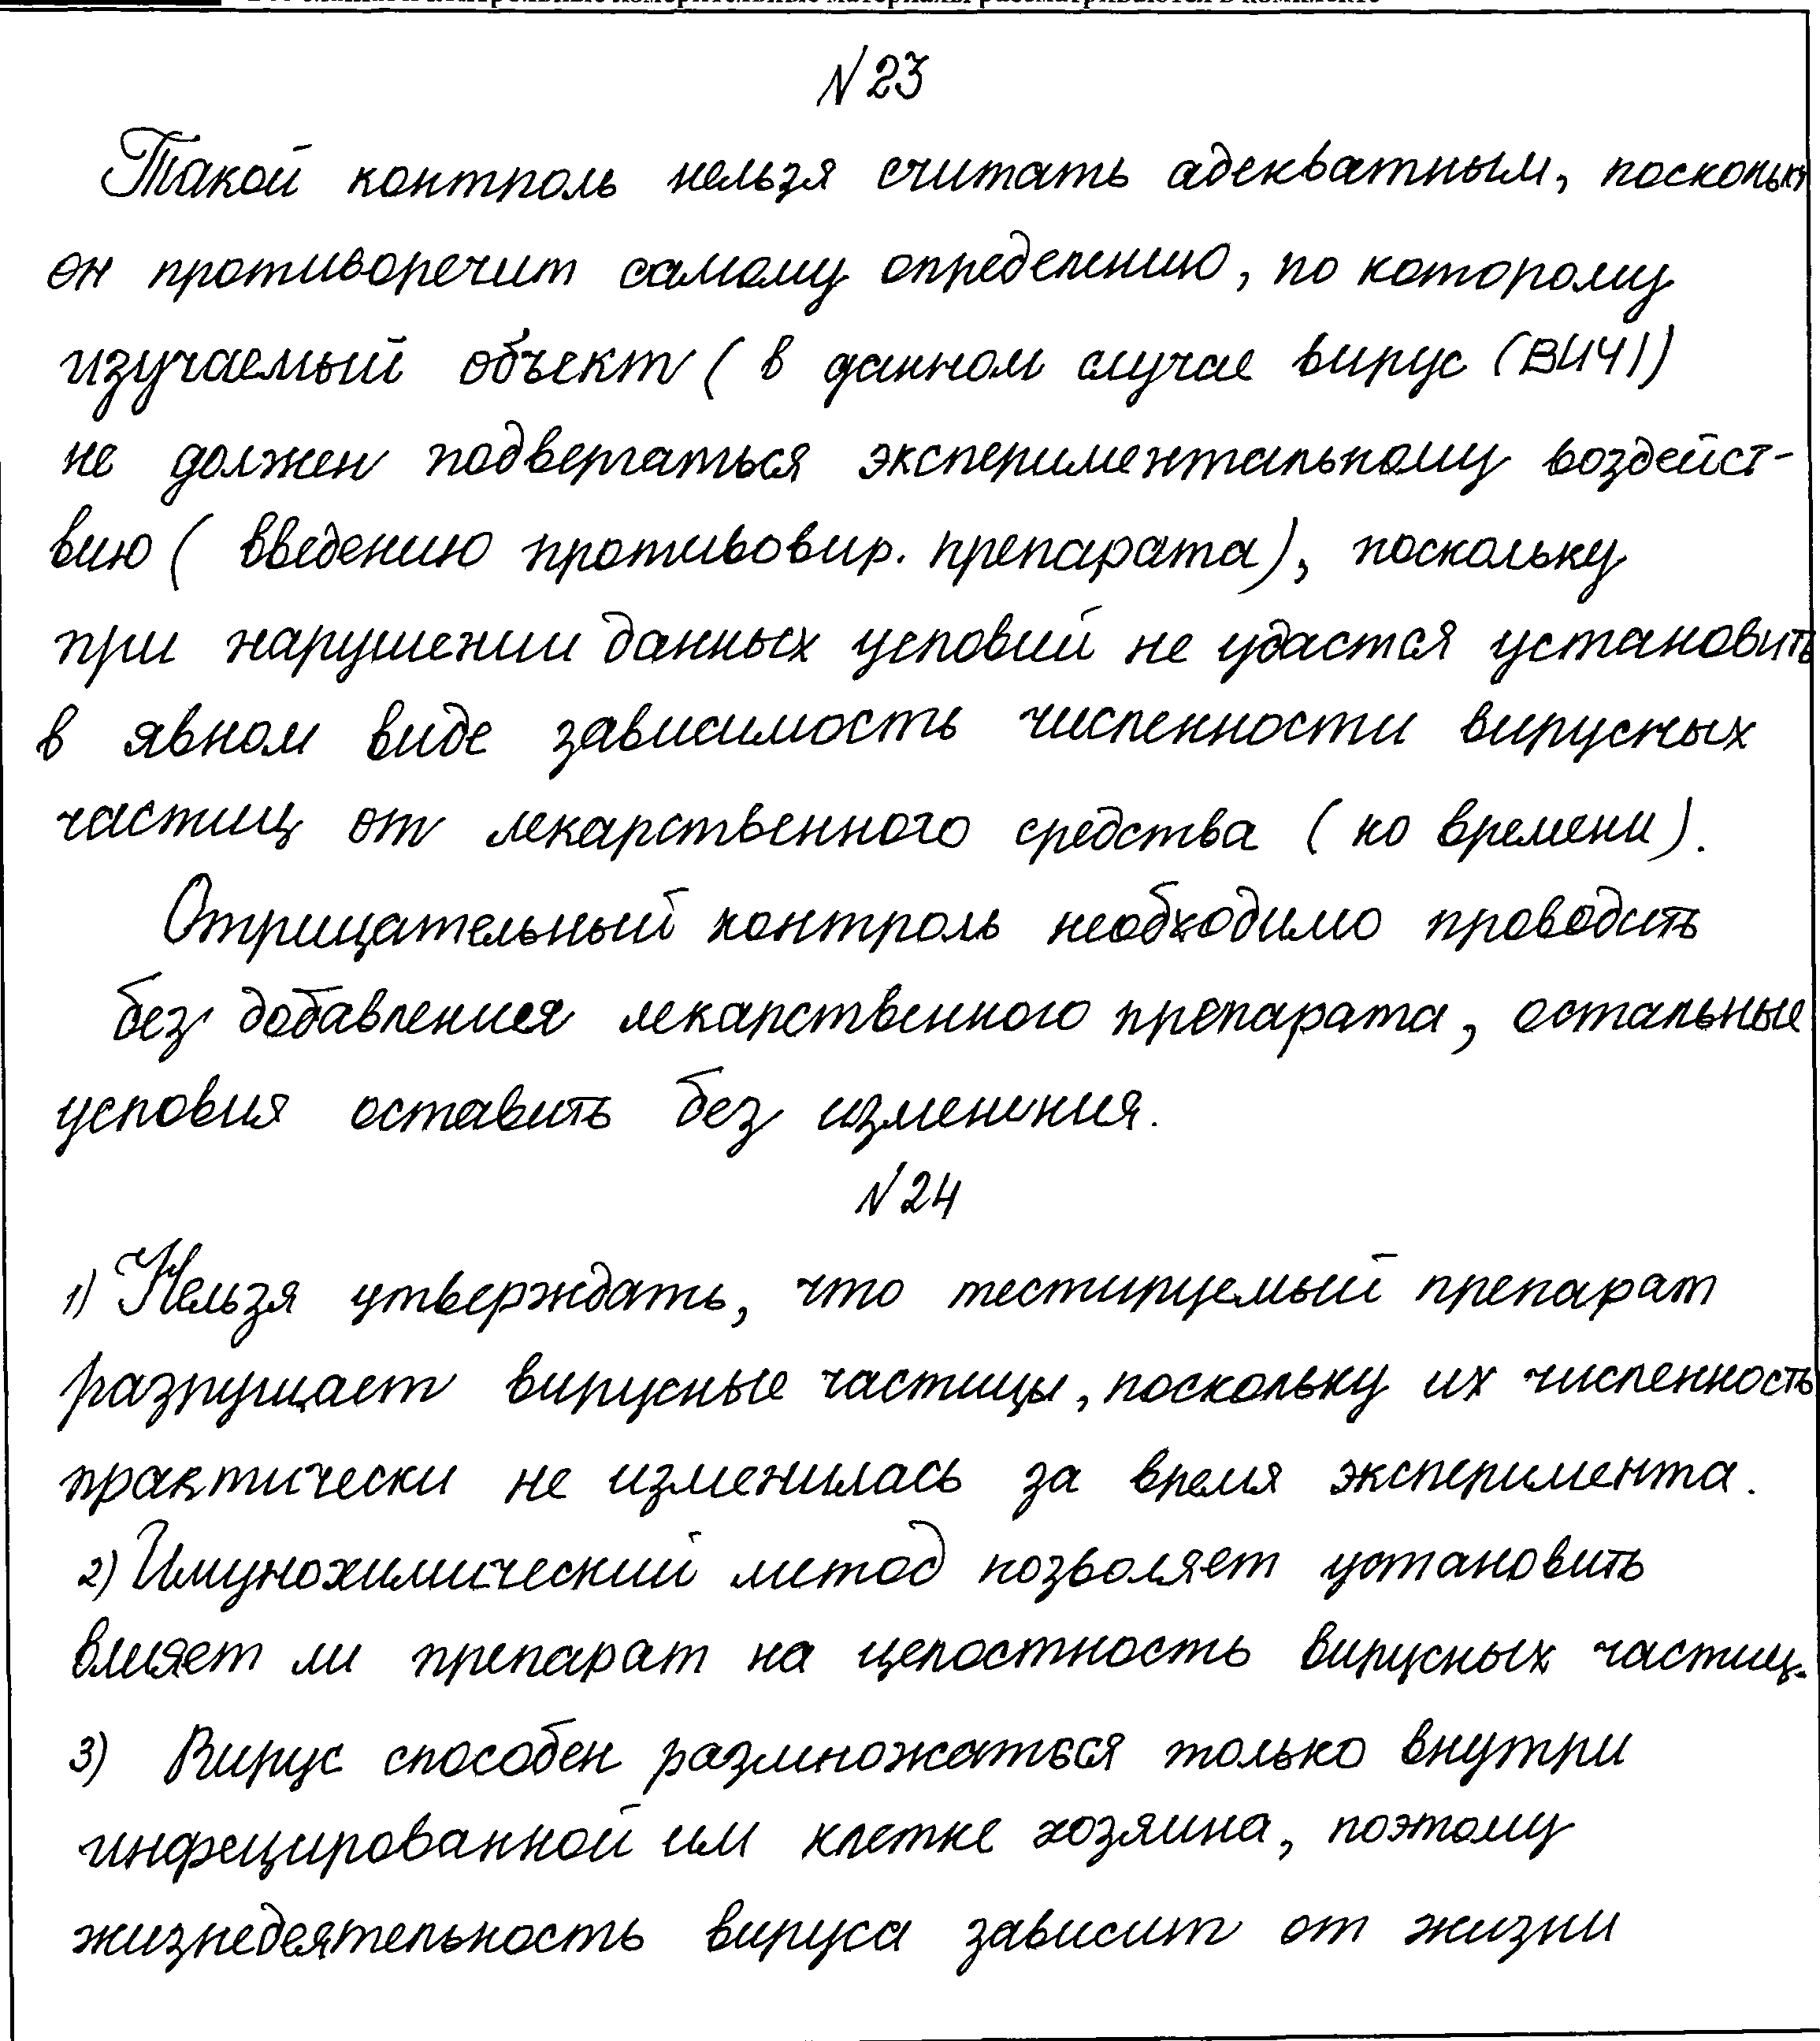 № 23
Такой контроль нельзя считать адекватным, поскольку
он противоречит самому определению, по которому
изучаемый объект ( в данном случае вирус (ВИЧ1)
не должен подвергаться экспериментальному воздейст-
вию ( введению противовир. препарата), поскольку
при нарушении данных условий не удастся установить
в явном виде зависимость численности вирусных
частиц от лекарственного средства ( ко времени).
Отрицательный контроль необходимо проводить
без добавления лекарственного препарата, остальные
условия оставить без изменения.
№ 24
1) Нельзя утверждать, что тестируемый препарат
разрушает вирусные частицы, поскольку их численность
практически не изменилась за время эксперимента.
2) Имунохимический метод позволяет установить
влияет ли препарат на целостность вирусных частиц.
3) Вирус способен размножаться только внутри
инфецированной им клетке хозяина, поэтому
жизнедеятельность вируса зависит от жизни